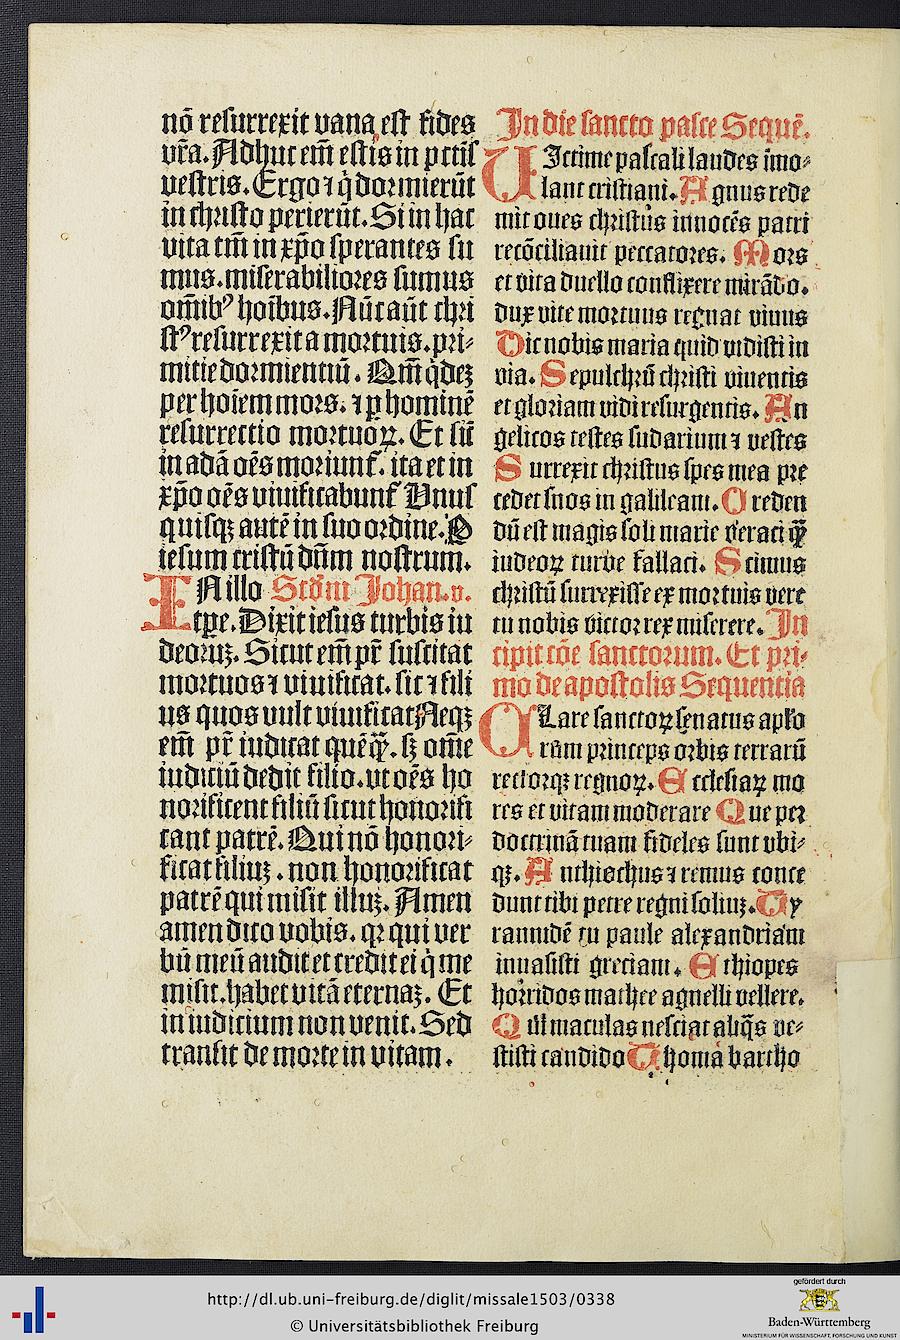 nō resurrexit vana est fides
vr̄a. Adhuc em̄ estis in pctis
vestris. Ergo ⁊ q̇ dormierūt
in christo perierūt. Si in hac
vita tm̄ in xp̄o sperantes su
mus. miserabiliores sumus
om̄ibꝰ hoībus. Nūc aūt chri
stꝰ resurrexit a mortuis. pri⸗
mitie dormientiū. Qm̄ q̇dez
per hoīem mors. ⁊ ꝑ hominē
resurrectio mortuoꝝ. Et sic̄
in adā oēs moriunt᷑. ita et in
xp̄o oēs viuificabunt᷑ Vnus
quisqꝫ autē in suo ordine. P
iesum cristū dn̄m nostrum.
IN illo Scd̄m Johan. v.
tpe. Dixit iesus turbis iu
deoruꝫ. Sicut em̄ pr̄ suscitat
mortuos ⁊ viuificat. sic ⁊ fili
us quos vult viuificat Neqꝫ
em̄ pr̄ iudicat quēq̄ꝫ. sꝫ om̄e
iudiciū dedit filio. vt oēs ho
norificent filiū sicut honorifi
cant patrē. Qui nō honori⸗
ficat filiuꝫ. non honorificat
patrē qui misit illuꝫ. Amen
amen dico vobis. qꝛ qui ver
bū meū audit et credit ei q̇ me
misit. habet vitā eternaꝫ. Et
in iudicium non venit. Sed
transit de morte in vitam.
In die sancto pasce Sequē.
VIctime pascali laudes īmo⸗
lant cristiani. Agnus rede
mit oues christus innocēs patri
recōciliauit peccatores. Mors
et vita duello conflixere mirādo.
dux vite mortuus regnat viuus
Dic nobis maria quid vidisti in
via. Sepulchrū christi viuentis
et gloriam vidi resurgentis. An
gelicos testes sudarium ⁊ vestes
Surrexit christus spes mea pre
cedet suos in galileam. Creden
dū est magis soli marie veraci q̄ꝫ
iudeoꝝ turbe fallaci. Scimus
christū surrexisse ex mortuis vere
tu nobis victor rex miserere. In
cipit cōe sanctorum. Et pri⸗
mo de apostolis Sequentia
CLare sanctoꝝ senatus apło
rum princeps orbis terrarū
rectorqꝫ regnoꝝ. Ecclesiaꝝ mo
res et vitam moderare Que per
doctrinā tuam fideles sunt vbi⸗
qꝫ. Anthiochus ⁊ remus conce
dunt tibi petre regni soliuꝫ. Ty
rannidē tu paule alexandriam
inuasisti greciam. Ethiopes
horridos mathee agnelli vellere.
Qui maculas nesciat aliq̄s ve⸗
stisti candido Thoma bartho
http://dl.ub.uni-freiburg.de/diglit/missale1503/0338
© Universitätsbibliothek Freiburg
gefördert durch
Baden-Württemberg
MINISTERIUM FÜR WISSENSCHAFT, FORSCHUNG UND KUNST